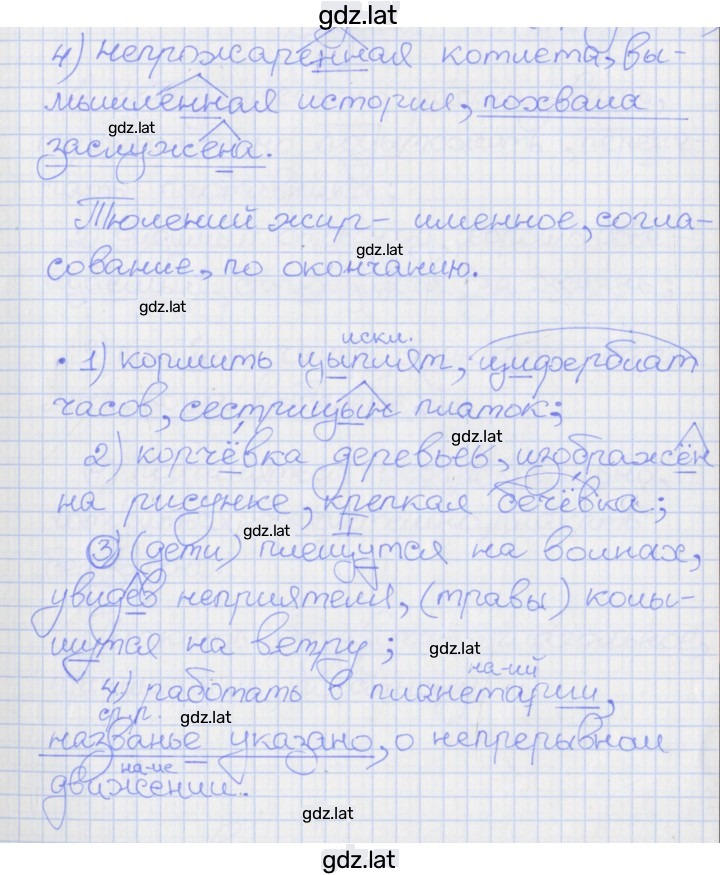 gdz.lat
4) непрожаренная котлета, вы-
мышленная история, похвала
gdz.lat
заслужена.
Тюлений жир - именное, согла-
gdz.lat
сование, по окончанию.
gdz.lat
искл.
• 1) кормить цыплят, циферблат
часов, сестрицын платок;
gdz.lat
2) корчёвка деревьев, изображён
на рисунке, крепкая бечёвка;
gdz.lat
II
3 (дети) плещутся на волнах,
увидев неприятеля, (травы) колы-
шутся на ветру;
gdz.lat
на-ий
4) работать в планетарии,
ср.р.
gdz.lat
названье указано, о непрерывном
на-ие
движении.
gdz.lat
gdz.lat